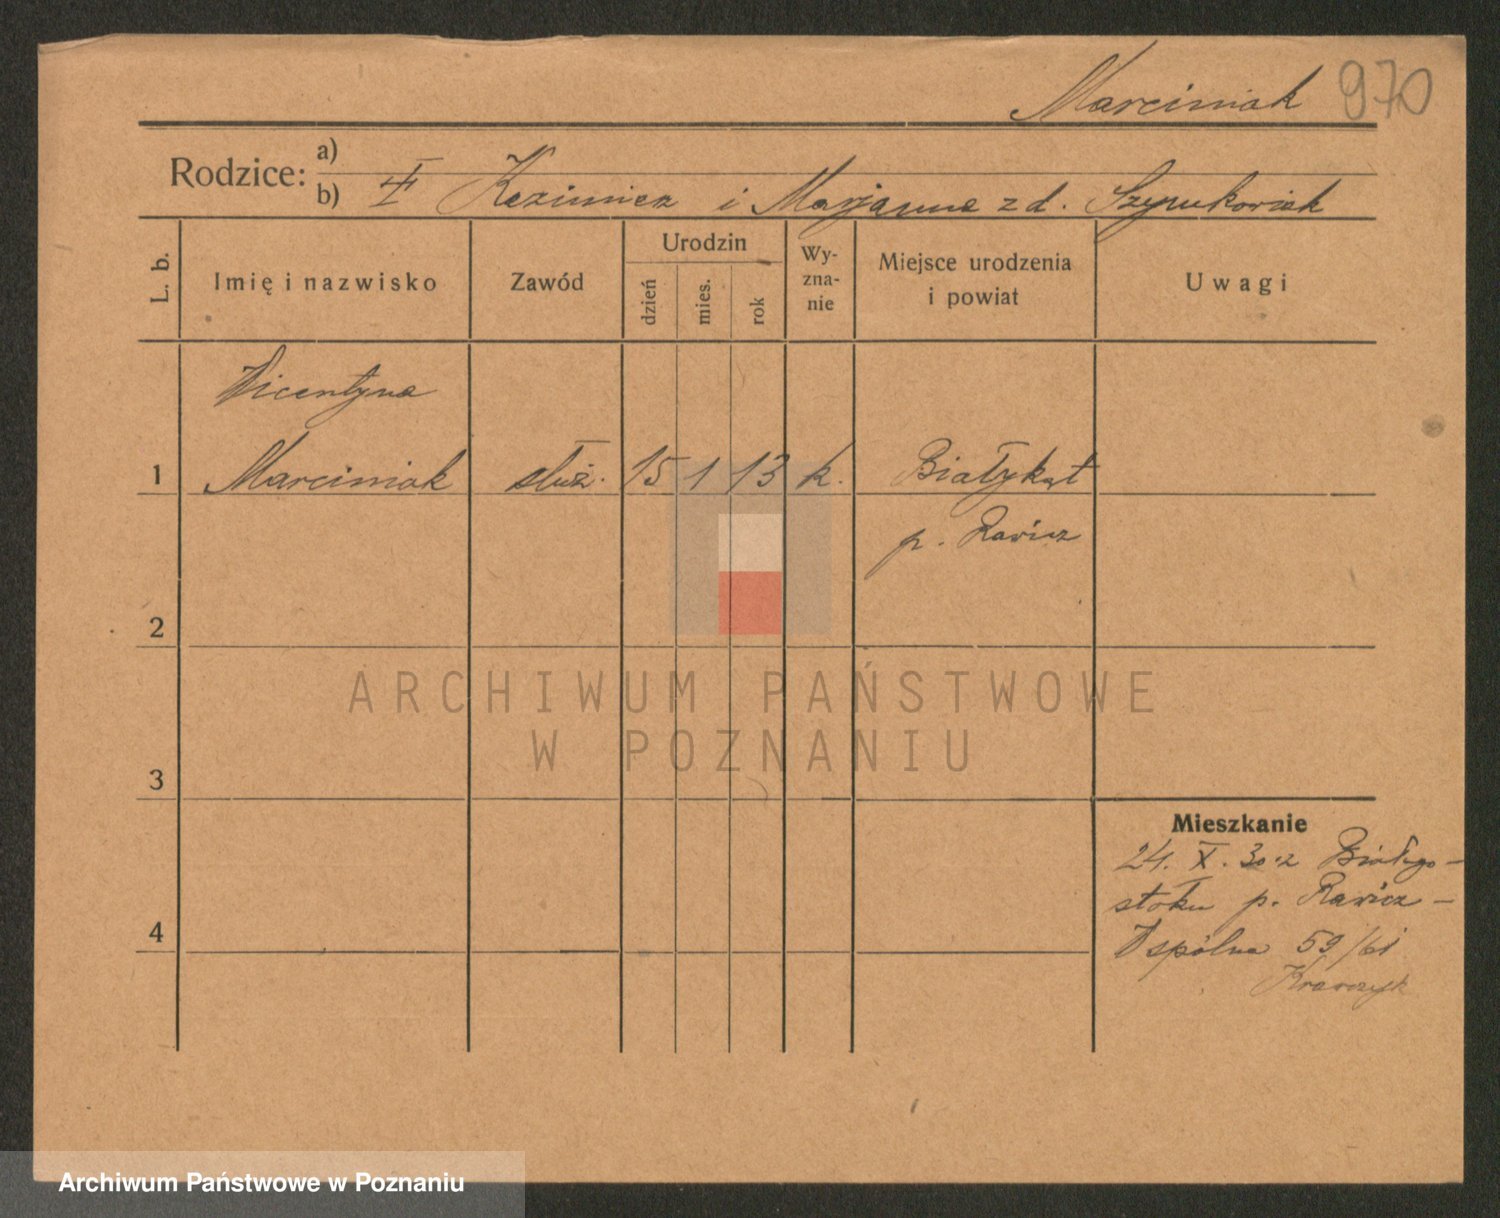 Marciniak 970
Rodzice: a)
b) Kazimierz i Marjanna z d. Szymkowiak
L. b.
Imię i nazwisko
Zawód
Urodzin
dzień
mies.
rok
Wy-
zna-
nie
Miejsce urodzenia
i powiat
Uwagi
Wicentyna
1 Marciniak służ. 15 1 13 k. Białykąt
p. Rawicz
2
3
4
ARCHIWUM PAŃSTWOWE
W POZNANIU
Mieszkanie
24. X. 30. z Białego-
stoku p. Rawicz -
Wspólna 59/61
Krawczyk
Archiwum Państwowe w Poznaniu